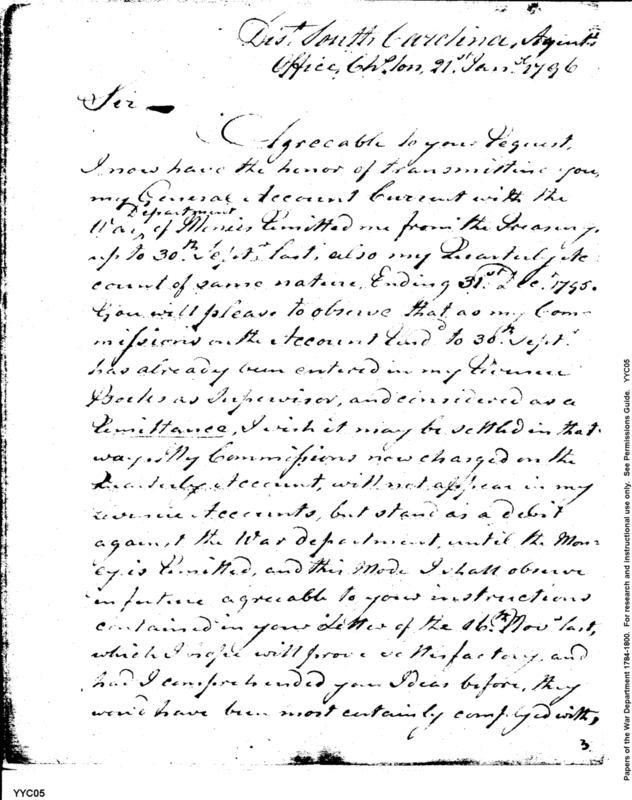 Dist. South Carolina, Agents
Office, Chs.ton, 21st Jany. 1796
Sir
Agreeable to your Request,
I now have the honor of transmitting you,
my General Account Current with the
War Department of Monies Remitted me from the Treasury,
up to 30th Septr. last; also my Quarterly Ac
count of same nature, Ending 31st Decr. 1795.
You will please to observe that as my Com
missions on the Account to 30th Septr.
has already been entered in my Revenue
Books as Supervisor, and considered as a
Remittance, I wish it may be settled in that
way, My Commissions now charged on the
Quarterly Account, will not appear in my
revenue Accounts, but stand as a debit
against the War department, until the Mon
ey is Remitted, and this Mode I shall observe
in future agreeable to your instructions
contained in your Letter of the 16th Novr. last,
which I hope will prove satisfactory, and
had I comprehended your Ideas before, they
would have been most certainly complyed with,
3
YYC05
Papers of the War Department 1784-1800. For research and instructional use only. See Permissions Guide. YYC05